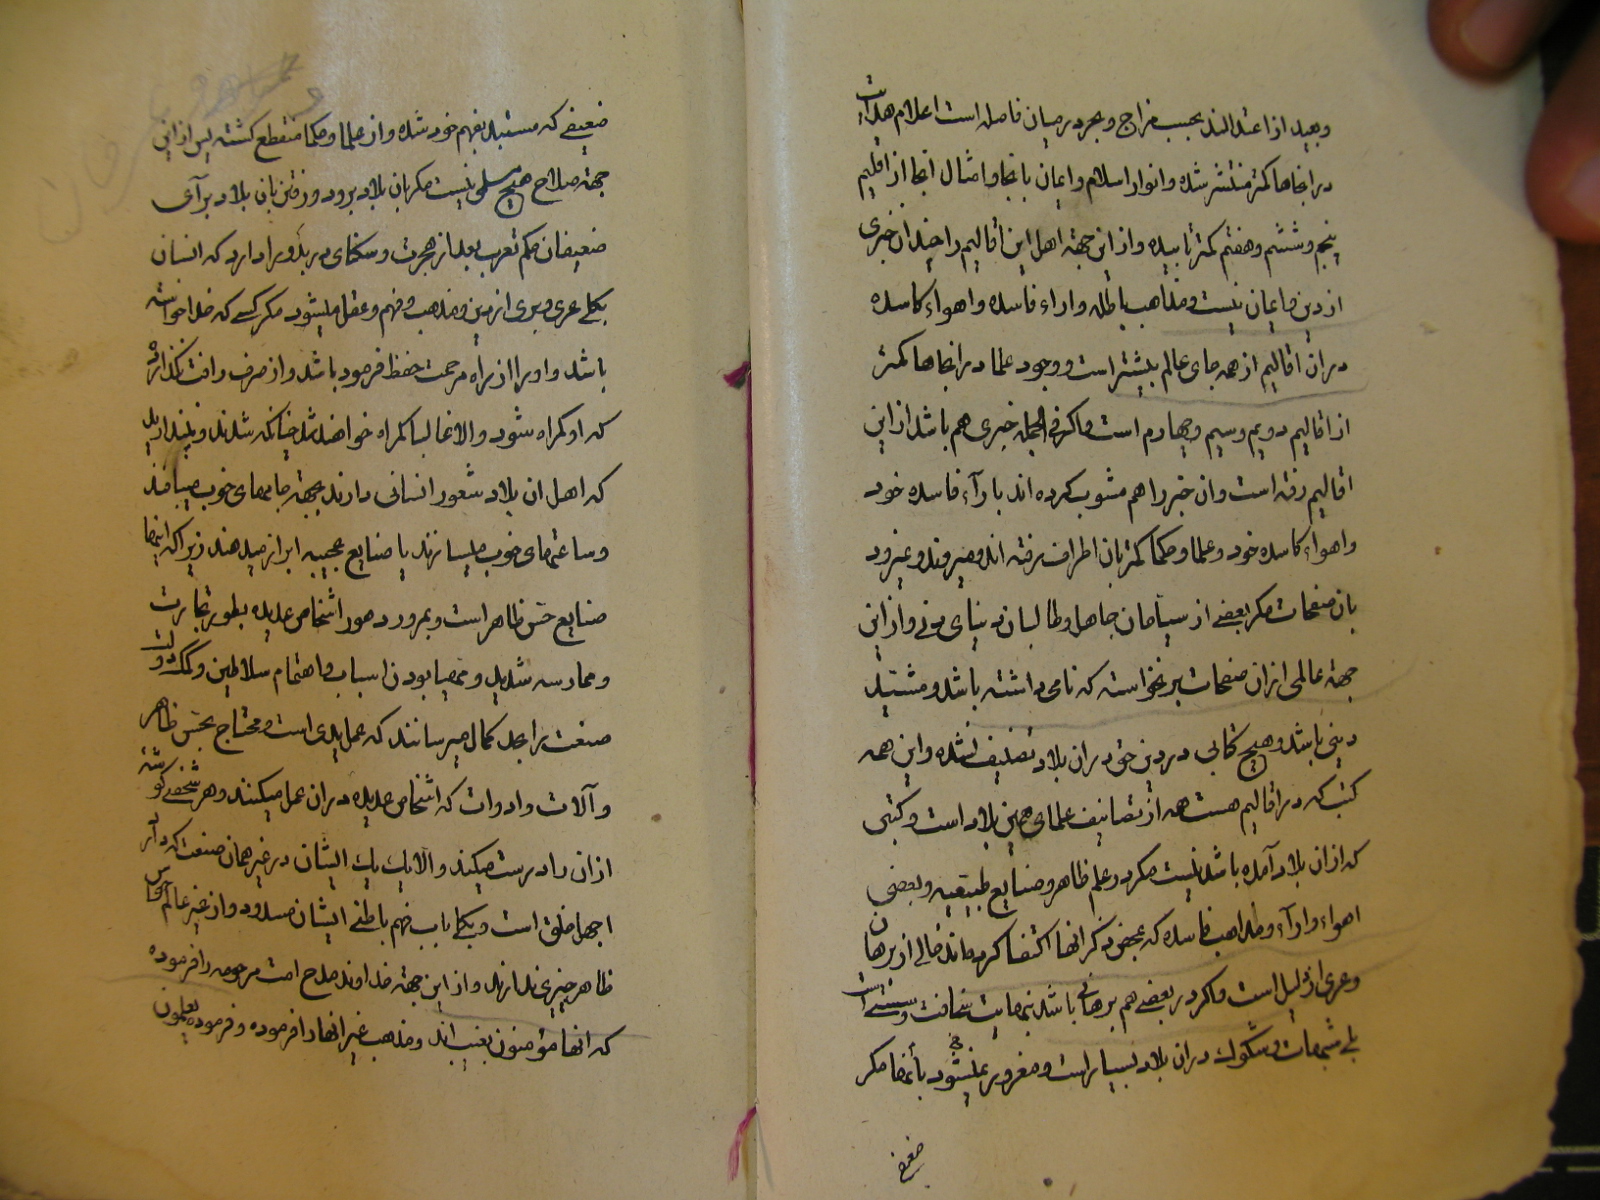 وبعید از اعتدالند بحسب مزاج و بحر درمیان فاصله است اعلام هدایت
در انجاها کمتر منتشر شده و انوار اسلام و ایمان بانجا و امثال انجا از اقلیم
پنجم و ششم و هفتم کمتر تابیده و از این جهة اهل این اقالیم را چندان خبری
از دین و ایمان نیست و مذاهب باطله و اراء فاسده و اهواء کاسده
در ان اقالیم از همه جای عالم بیشتر است و وجود علما در انجاها کمتر
از اقالیم دویم و سیم و چهارم است و اکر فی الجمله خبری هم باشد از این
اقالیم رفته است و ان خبر را هم مشوب کرده اند باراء فاسده خود
و اهواء کاسده خود و علما و حکما کمتر بان اطراف رفته اند و میروند و نمیرود
بان صفحات مکر بعضی از سیاحان جاهل و طالبان دنیای دنی و از این
جهة عالمی از ان صفحات برنخواسته که نامی داشته باشد و مشید
دینی باشد و هیچ کتابی در دین حق در ان بلاد تصنیف نشده و این همه
کتب که در اقالیم هست همه از تصانیف علمای همین بلاد است و کتبی
که از ان بلاد آمده باشد نیست مکر در علم ظاهر و صنایع طبیعیه و بعضی
اهواء و اراء و مذاهب فاسده که بمحض ذکر انها اکتفا کرده اند خالی از برهان
و عری از دلیل است و اکر در بعضی هم برهانی باشد بنهایت سخافت و سستی است
بلی شبهات و شکوک در ان بلاد بسیار است و مغرور نمیشود بانها مکر
ضعیفی
ضعیفی که مستبد بفهم خود شده و از علما و حکما منقطع کشته پس از این
جهة صلاح هیچ مسلمی نیست مکر بان بلاد برود و رفتن بان بلاد برای
ضعیفان حکم تعرب بعد از هجرت و سکنای در بدو را دارد که انسان
بکلی عری و بری از دین و مذهب و فهم و عقل میشود مکر کسی که خدا خواسته
باشد و او را از راه مرحمت حفظ فرموده باشد و از صرف رافت نکذارده
که او کمراه شود و الا غالبا کمراه خواهند شد چنانکه شدند و نپندارید
که اهل ان بلاد شعور انسانی دارند بجهة جامهای خوب میبافند
و ساعتهای خوب میسازند یا صنایع عجیبه ابراز میدهند زیرا که اینها
صنایع حس ظاهر است و بمرور دهور اشخاص عدیده بطور تجارت
و ممارسه شدید و مهیا بودن اسباب و اهتمام سلاطین و ملک و دولت
صنعت را بحد کمال میرسانند که عمل یدی است و محتاج بحس ظاهر
و آلات و ادوات که اشخاص عدیده در ان عمل میکنند و هر شخصی کوشه
از ان را درست میکند و الا یک یک ایشان در غیر همان صنعت که دارد
اجهل خلق است و بکلی باب فهم باطنی ایشان مسدود و از غیر عالم حواس
ظاهر چیزی ندارند و از این جهة خداوند مدح امت مرحومه را فرموده
که انها مؤمنون بغیب اند و مذهب غیر انها را فرموده و فرموده یعلمون